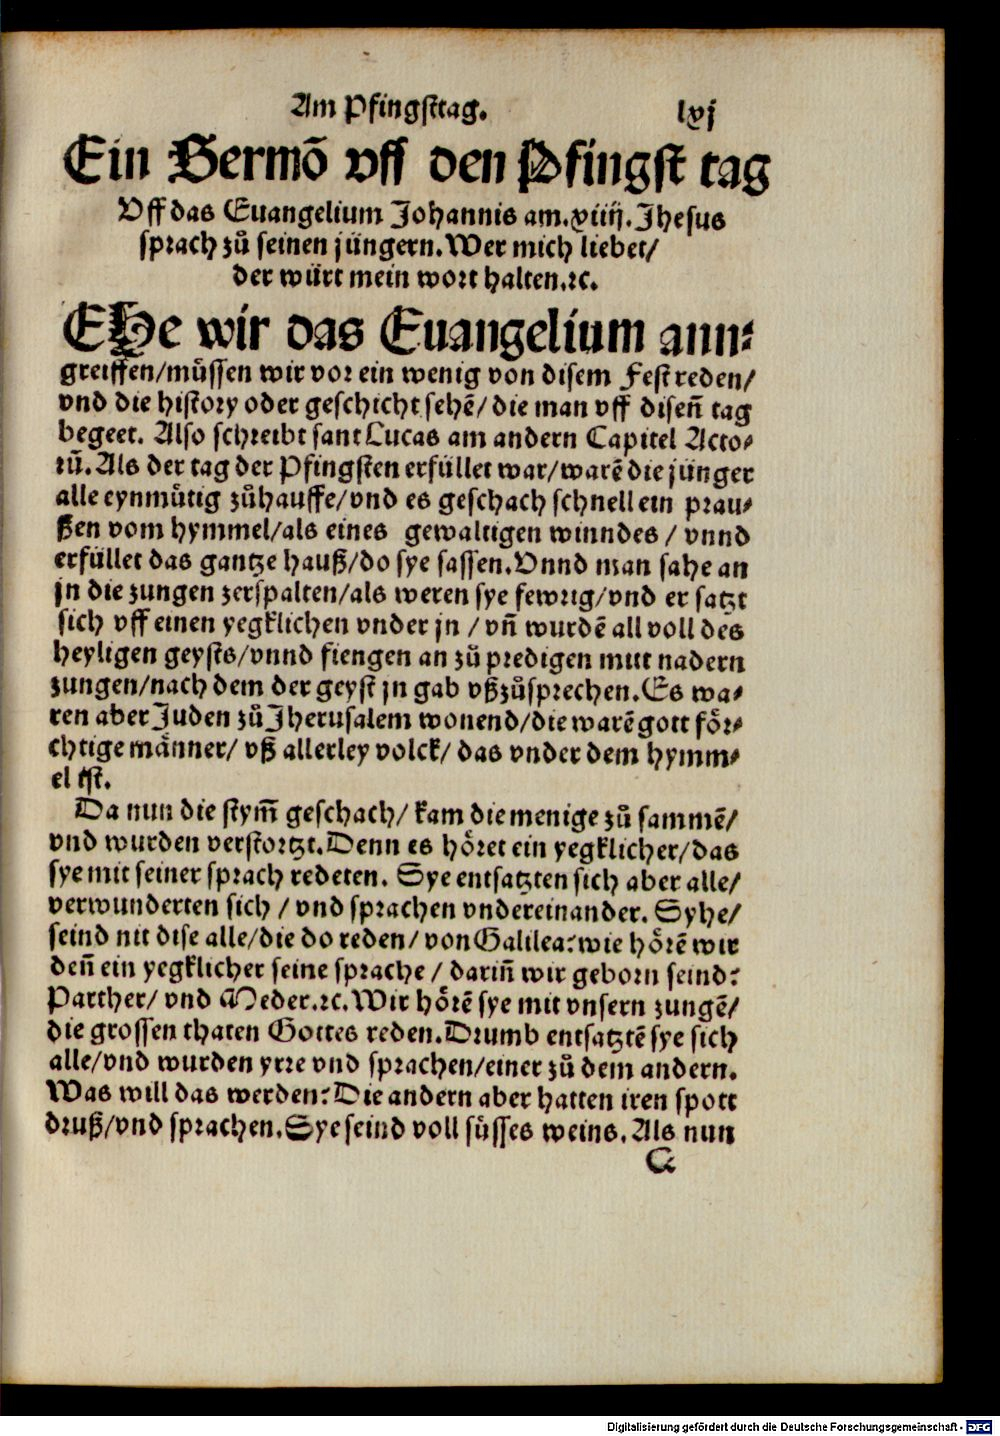 Am Pfingsttag. lxj
Ein Sermõ vff den Pfingst tag
Vff das Euangelium Johannis am.xiiij.Jhesus
sprach zů seinen jüngern.Wer mich liebet/
der würt mein wort halten.ꝛc.
EHe wir das Euangelium ann⸗
greiffen/můssen wir vor ein wenig von disem Fest reden/
vnd die history oder geschicht sehẽ/die man vff diseñ tag
begeet. Also schreibt sant Lucas am andern Capitel Acto⸗
rũ.Als der tag der Pfingsten erfüllet war/warẽ die jünger
alle eynmůtig zůhauffe/vnd es geschach schnell ein prau⸗
ßen vom hymmel/als eines gewaltigen winndes / vnnd
erfüllet das gantze hauß/do sye sassen.Vnnd man sahe an
jn die zungen zerspalten/als weren sye fewrig/vnd er satzt
sich vff einen yegklichen vnder jn / vñ wurdẽ all voll des
heyligen geysts/vnnd fiengen an zů predigen mit nadern
zungen/nach dem der geyst jn gab vßzůsprechen.Es wa⸗
ren aber Juden zů Jherusalem wonend/die warẽ gott för⸗
chtige männer/ vß allerley volck/ das vnder dem hymm⸗
el ist.
Da nun die stym̃ geschach/ kam die menige zů sammẽ/
vnd wurden verstortzt.Denn es höret ein yegklicher/das
sye mit seiner sprach redeten. Sye entsatzten sich aber alle/
verwunderten sich / vnd sprachen vndereinander. Syhe/
seind nit dise alle/die do reden/ von Galilea?wie hörẽ wir
deñ ein yegklicher seine sprache / dariñ wir geborn seind?
Parther/ vnd Meder.ꝛc.Wir hörẽ sye mit vnsern zungẽ/
die grossen thaten Gottes reden.Drumb entsatztẽ sye sich
alle/vnd wurden yrre vnd sprachen/einer zů dem andern.
Was will das werden?Die andern aber hatten iren spott
druß/vnd sprachen.Sye seind voll sůsses weins. Als nun
Digitalisierung gefördert durch die Deutsche Forschungsgemeinschaft - DFG